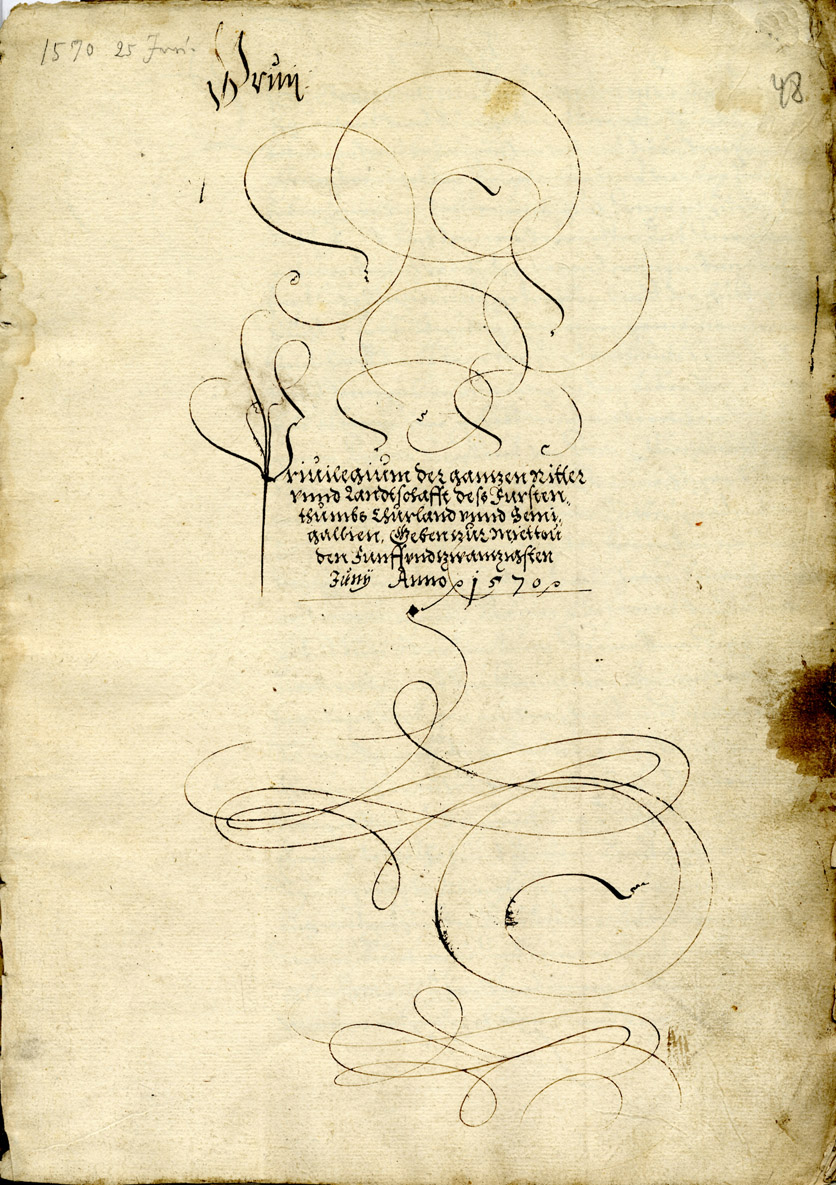 1570 25 Juni.
48
Priuilegium der gantzen Ritter
vnnd Landtschafft dess Fursten,
thumbs Churland vnnd Semi,
gallien, Geben zur Miettou
den Funffvndtzwantzigsten
Junÿ Anno 1570